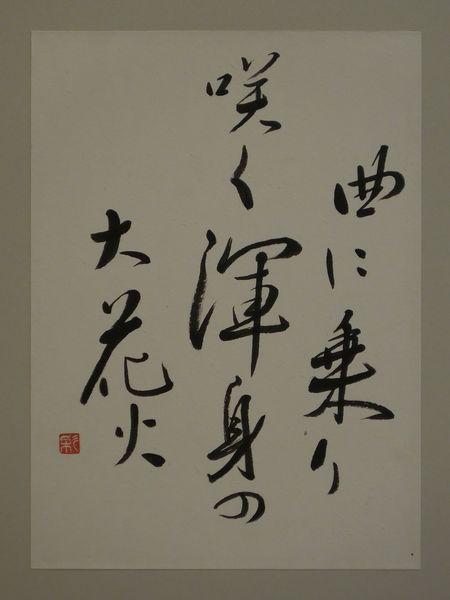 曲に乗り
咲く渾身の
大花火
彩